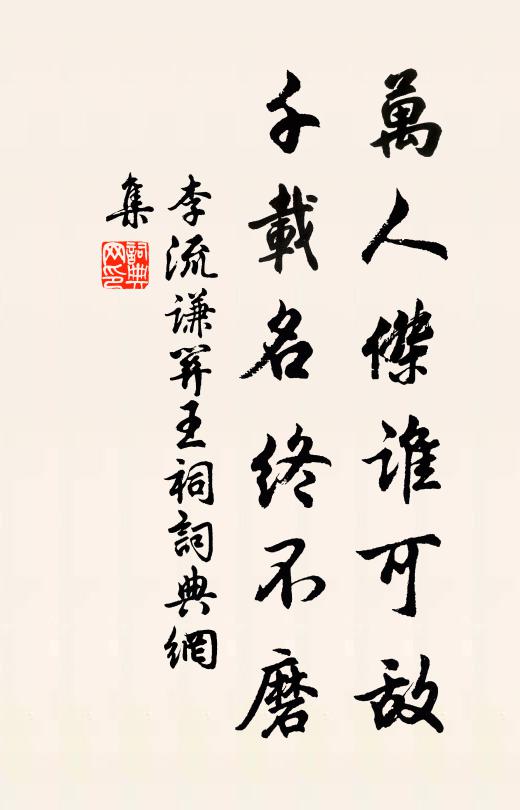 萬人傑谁可敌
千載名终不磨
李流谦羿王祠詞典網
集
詞典
网印